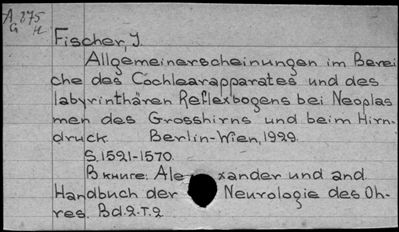 A 875
G H
Fischer, J.
Allgemeinerscheinungen im Berei
che des Cochlearapparates und des
labyrinthären Reflexbogens bei Neoplas
men des Grosshirns und beim Hirn-
druck. Berlin-Wien, 1929.
S. 1521-1570.
В книге: Ale xander und and.
Handbuch der Neurologie des Oh-
res. Bd. 2. T. 2.